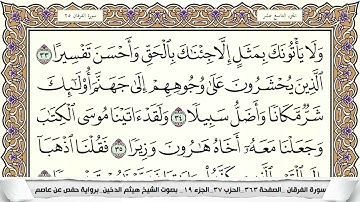 الجزء التاسع عشر
سورة الفرقان ٢٥
وَلَا يَأْتُونَكَ بِمَثَلٍ إِلَّا جِئْنَٰكَ بِٱلْحَقِّ وَأَحْسَنَ تَفْسِيرًا ٣٣
ٱلَّذِينَ يُحْشَرُونَ عَلَىٰ وُجُوهِهِمْ إِلَىٰ جَهَنَّمَ أُو۟لَٰٓئِكَ
شَرٌّ مَّكَانًا وَأَضَلُّ سَبِيلًا ٣٤ وَلَقَدْ ءَاتَيْنَا مُوسَى ٱلْكِتَٰبَ
وَجَعَلْنَا مَعَهُۥٓ أَخَاهُ هَٰرُونَ وَزِيرًا ٣٥ فَقُلْنَا ٱذْهَبَآ
سورة الفرقان _الصفحة ٣٦٣_ الحزب ٣٧_ الجزء ١٩ _ بصوت الشيخ هيثم الدخين_ برواية حفص عن عاصم